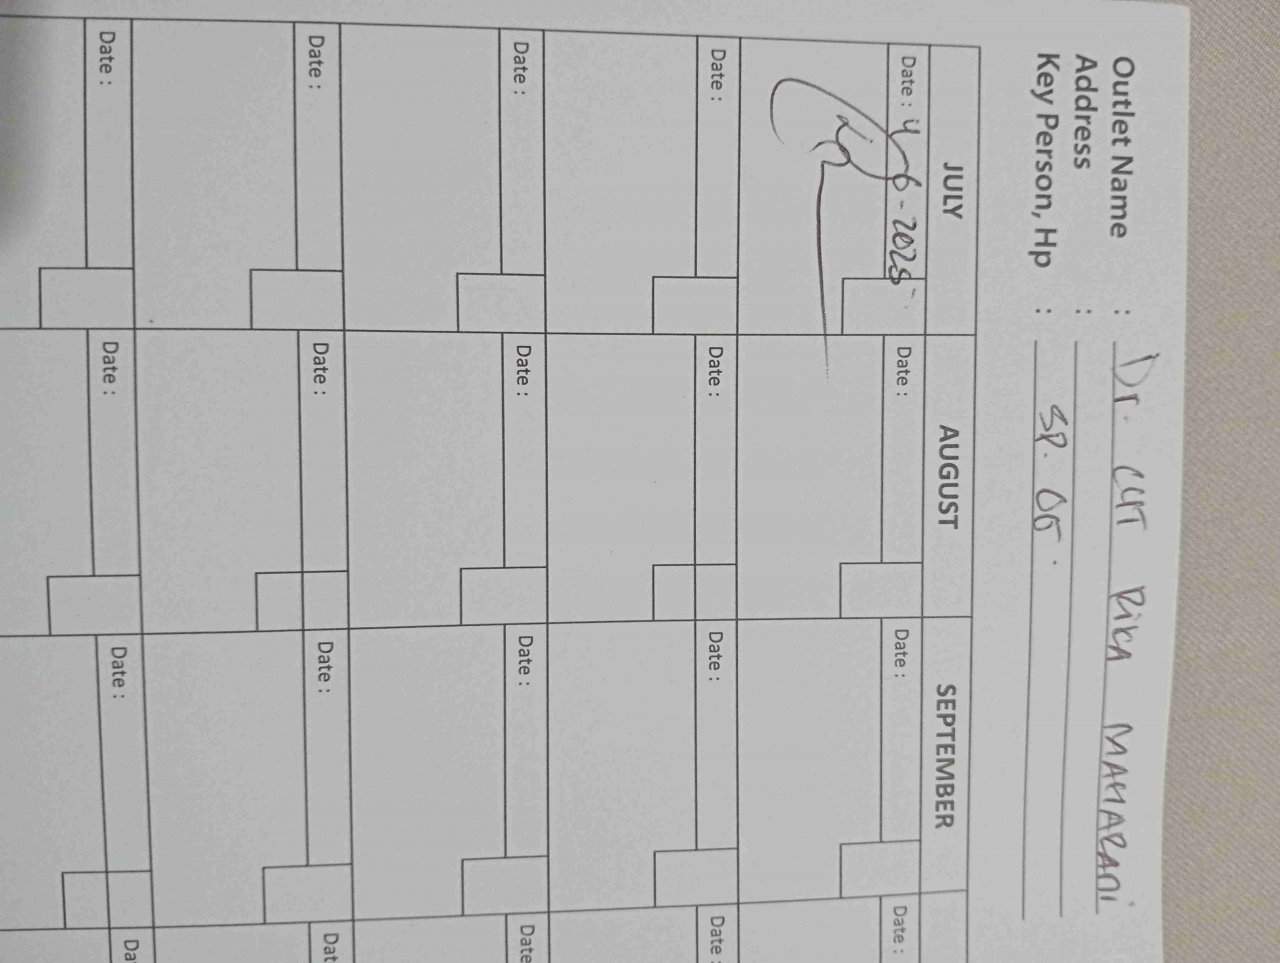 Outlet Name : Dr. CUT RIKA MAHARANI
Address : SP. OG.
Key Person, Hp :
JULY AUGUST SEPTEMBER
Date : 4-6-2025 Date : Date : Date :
Date : Date : Date : Date :
Date : Date : Date : Date
Date : Date : Date : Dat
Date : Date : Date : Da